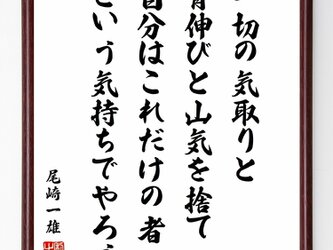 切の気取りと
背伸びと山気を捨て
自分はこれだけの者
という気持ちでやろう
尾崎一雄